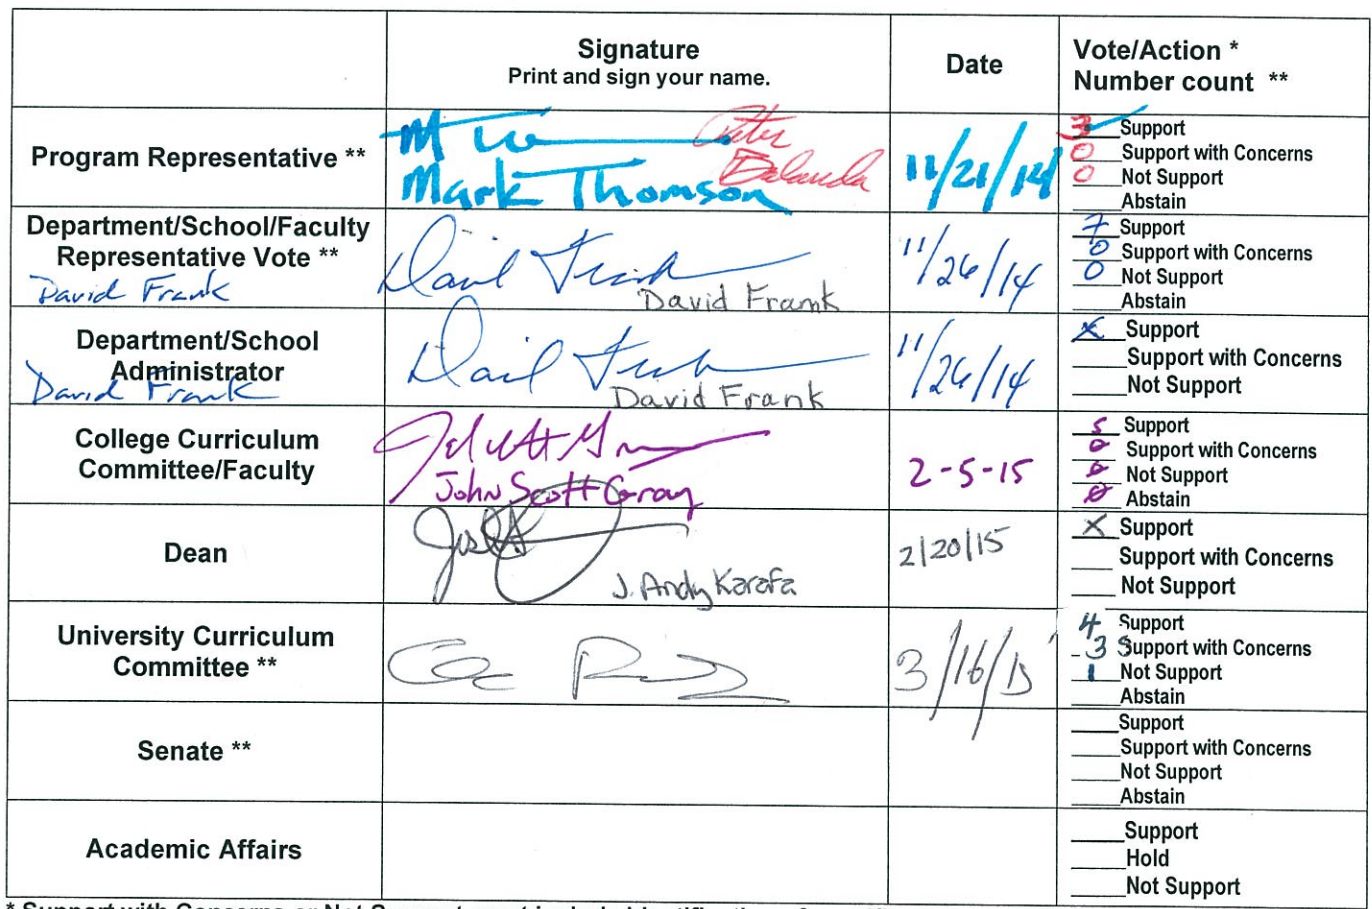 Signature
Print and sign your name.
Date
Vote/Action *
Number count **
Program Representative **
Mark Thomson
Peter
Balanda
11/21/14
3 Support
0 Support with Concerns
0 Not Support
Abstain
Department/School/Faculty
Representative Vote **
David Frank
David Frank
11/26/14
7 Support
0 Support with Concerns
0 Not Support
Abstain
Department/School
Administrator
David Frank
David Frank
11/26/14
X Support
Support with Concerns
Not Support
College Curriculum
Committee/Faculty
John Scott Gray
2-5-15
5 Support
0 Support with Concerns
0 Not Support
0 Abstain
Dean
J. Andy Karafa
2/20/15
X Support
Support with Concerns
Not Support
University Curriculum
Committee **
3/16/15
4 Support
3 Support with Concerns
1 Not Support
Abstain
Senate **
Support
Support with Concerns
Not Support
Abstain
Academic Affairs
Support
Hold
Not Support